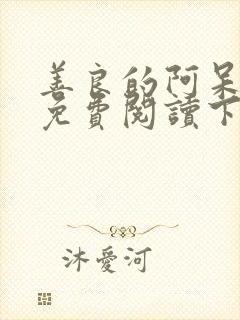 善良的阿呆
免費閱讀下
沐愛河